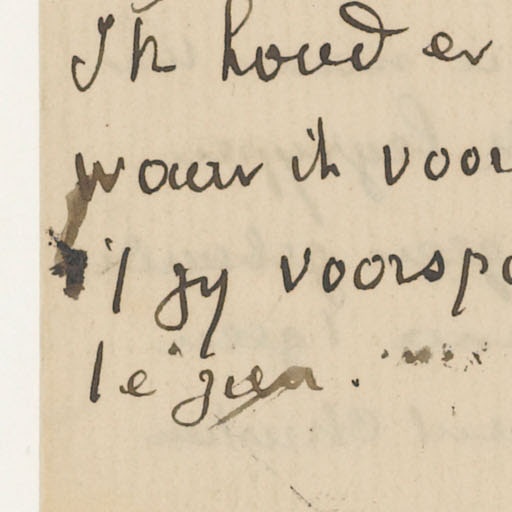 Ik houd er
waar ik voor
't zy voorspo
te gaan.